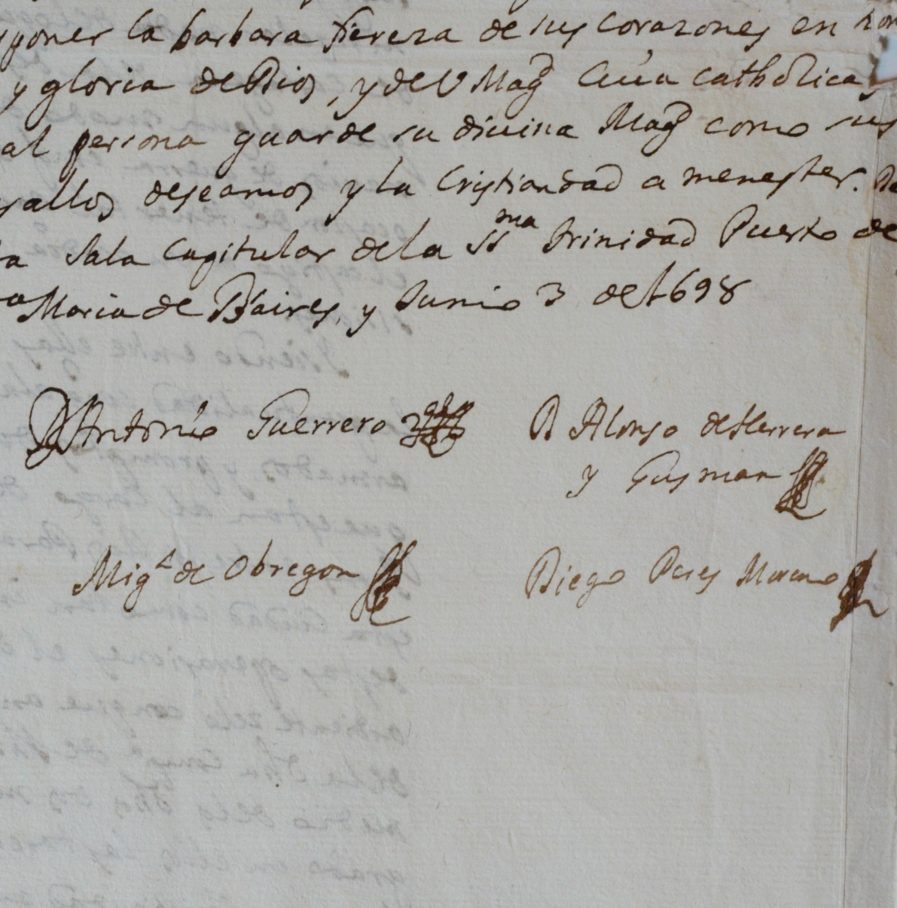 poner la barbara fiereza de sus corazones en hon
y gloria de Dios, y de V Magd Cuia catholica
al persona guarde su divina Magd como sus
sallos deseamos y la Cristiandad a menester. De
ta Sala Capitular de la SSma Trinidad Puerto de
ta Maria de Bs aires, y Junio 3 de 1698
Dn Antonio Guerrero
D Alonso de Herrera
y Gusman
Migl de Obregon
Diego Peres Moreno